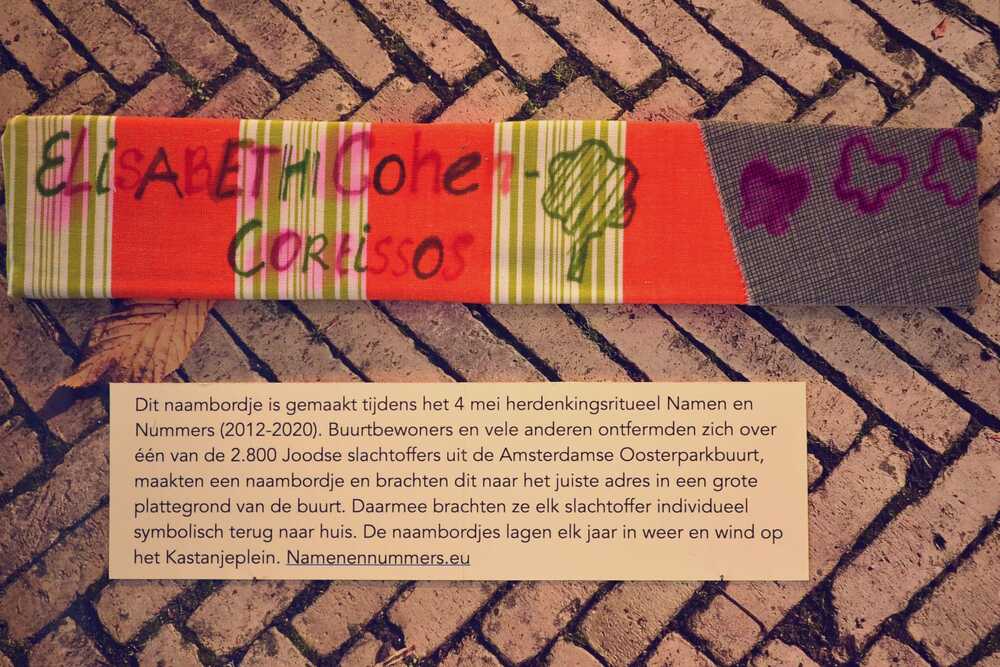 ELiSABETH Cohen-
CORtissos
Dit naambordje is gemaakt tijdens het 4 mei herdenkingsritueel Namen en
Nummers (2012-2020). Buurtbewoners en vele anderen ontfermden zich over
één van de 2.800 Joodse slachtoffers uit de Amsterdamse Oosterparkbuurt,
maakten een naambordje en brachten dit naar het juiste adres in een grote
plattegrond van de buurt. Daarmee brachten ze elk slachtoffer individueel
symbolisch terug naar huis. De naambordjes lagen elk jaar in weer en wind op
het Kastanjeplein. Namenennummers.eu